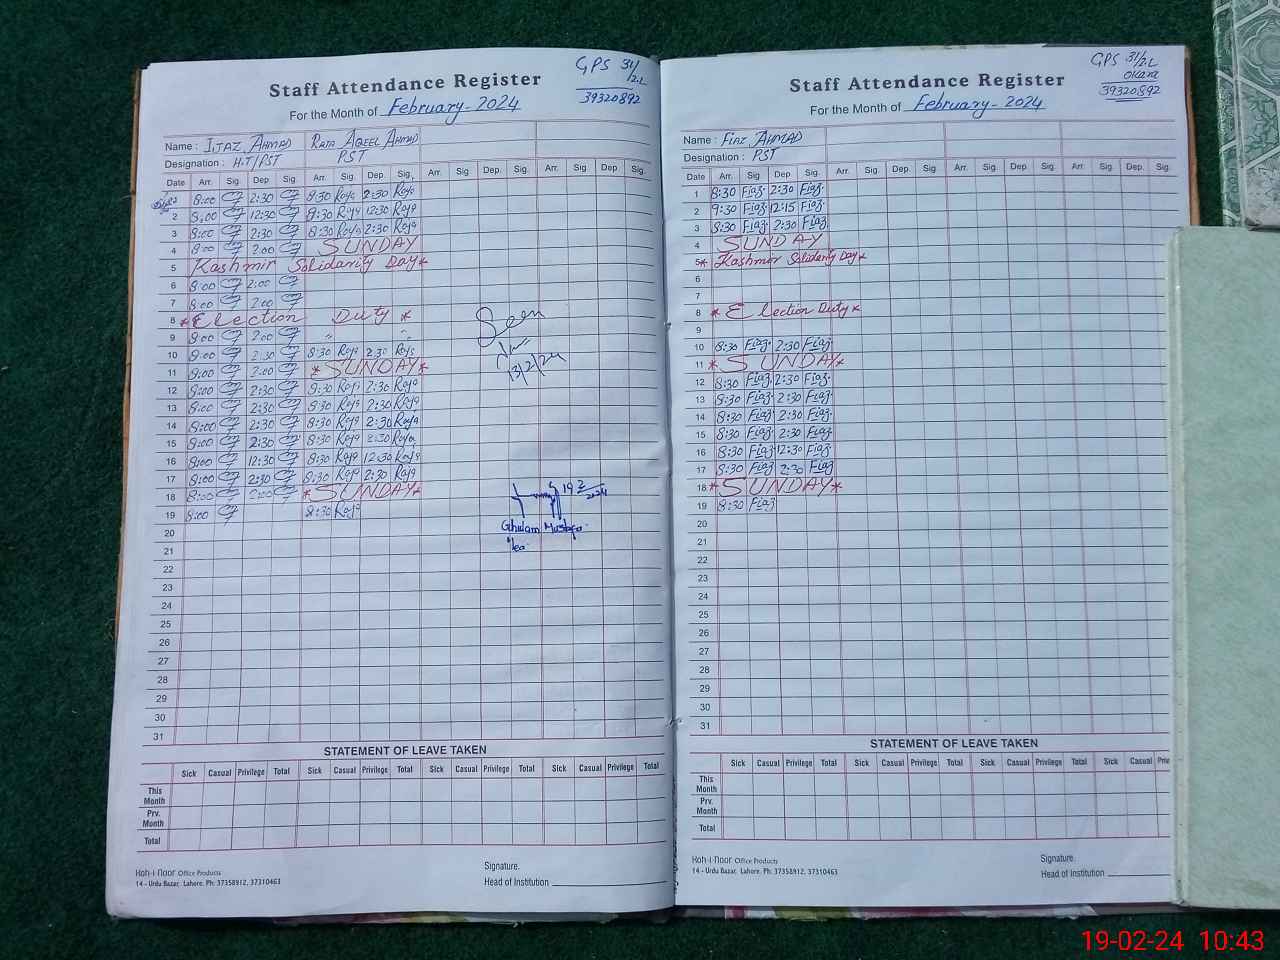 Staff Attendance Register
GPS 31/2.L
39320892
For the Month of February-2024
Name : IJAZ AHMAD RAJA AQEEL AHMAD
Designation : H.T/PST PST
Date Arr. Sig. Dep. Sig. Arr. Sig. Dep. Sig. Arr. Sig. Dep. Sig. Arr. Sig. Dep. Sig.
1 8:00 2:30 8:30 Raja 2:30 Raja
2 8:00 12:30 8:30 Raja 12:30 Raja
3 8:00 2:30 8:30 Raja 2:30 Raja
4 8:00 2:00 SUNDAY
5 Kashmir Solidarity Day*
6 8:00 2:00
7 8:00 2:00
8 *Election Duty *
9 8:00 2:00 " "
10 8:00 2:30 8:30 Raja 2:30 Raja
11 8:00 2:00 *SUNDAY*
12 8:00 2:30 8:30 Raja 2:30 Raja
13 8:00 2:30 8:30 Raja 2:30 Raja
14 8:00 2:30 8:30 Raja 2:30 Raja
15 8:00 2:30 8:30 Raja 2:30 Raja
16 8:00 12:30 8:30 Raja 12:30 Raja
17 8:00 2:30 8:30 Raja 2:30 Raja
18 8:00 2:00 *SUNDAY*
19 8:00 8:30 Raja
20
21
22
23
24
25
26
27
28
29
30
31
Seen
13/2/24
19 2/2024
Ghulam Mustafa
STATEMENT OF LEAVE TAKEN
Sick Casual Privilege Total Sick Casual Privilege Total Sick Casual Privilege Total Sick Casual Privilege Total
This Month
Prv. Month
Total
Koh-i-Noor Office Products
14 - Urdu Bazar, Lahore. Ph: 37358912, 37310463
Signature.
Head of Institution
Staff Attendance Register
GPS 31/2.L
OKARA
39320892
For the Month of February-2024
Name : FIAZ AHMAD
Designation : PST
Date Arr. Sig. Dep. Sig. Arr. Sig. Dep. Sig. Arr. Sig. Dep. Sig. Arr. Sig. Dep. Sig.
1 8:30 Fiaz 2:30 Fiaz
2 8:30 Fiaz 12:15 Fiaz
3 8:30 Fiaz 2:30 Fiaz
4 SUNDAY
5 * Kashmir Solidarity Day*
6
7
8 * Election Duty*
9
10 8:30 Fiaz 2:30 Fiaz
11 *SUNDAY*
12 8:30 Fiaz 2:30 Fiaz
13 8:30 Fiaz 2:30 Fiaz
14 8:30 Fiaz 2:30 Fiaz
15 8:30 Fiaz 2:30 Fiaz
16 8:30 Fiaz 12:30 Fiaz
17 8:30 Fiaz 2:30 Fiaz
18 *SUNDAY*
19 8:30 Fiaz
20
21
22
23
24
25
26
27
28
29
30
31
STATEMENT OF LEAVE TAKEN
Sick Casual Privilege Total Sick Casual Privilege Total Sick Casual Privilege Total Sick Casual Prive
This Month
Prv. Month
Total
Koh-i-Noor Office Products
14 - Urdu Bazar, Lahore. Ph: 37358912, 37310463
Signature.
Head of Institution
19-02-24 10:43